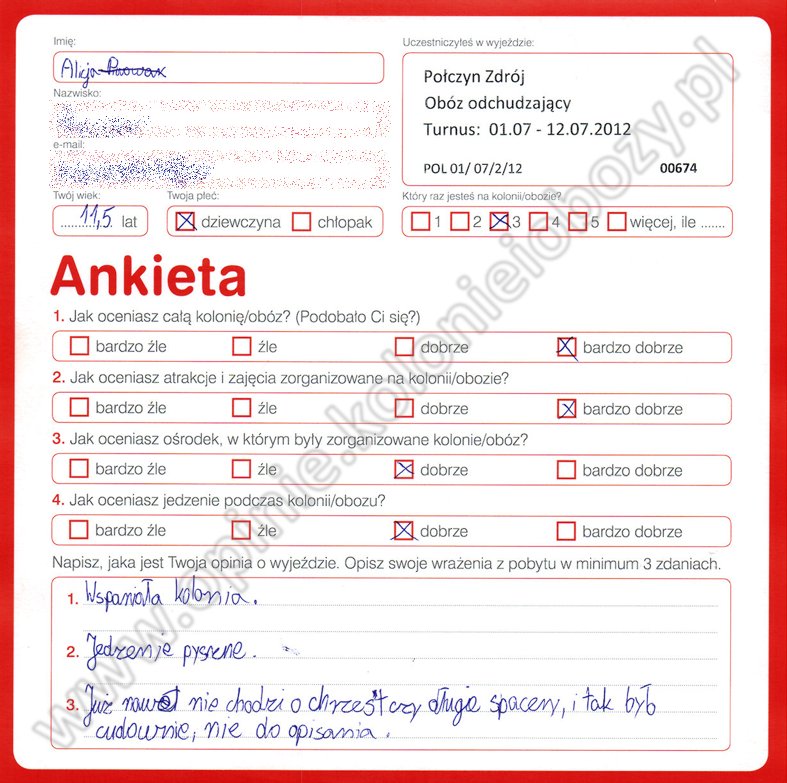 Imię:
Alicja
Nazwisko:
e-mail:
Twój wiek:
11,5 lat
Twoja płeć:
dziewczyna chłopak
Uczestniczyłeś w wyjeździe:
Połczyn Zdrój
Obóz odchudzający
Turnus: 01.07 - 12.07.2012
POL 01/ 07/2/12 00674
Który raz jesteś na kolonii/obozie?
1 2 3 4 5 więcej, ile .......
Ankieta
1. Jak oceniasz całą kolonię/obóz? (Podobało Ci się?)
bardzo źle źle dobrze bardzo dobrze
2. Jak oceniasz atrakcje i zajęcia zorganizowane na kolonii/obozie?
bardzo źle źle dobrze bardzo dobrze
3. Jak oceniasz ośrodek, w którym były zorganizowane kolonie/obóz?
bardzo źle źle dobrze bardzo dobrze
4. Jak oceniasz jedzenie podczas kolonii/obozu?
bardzo źle źle dobrze bardzo dobrze
Napisz, jaka jest Twoja opinia o wyjeździe. Opisz swoje wrażenia z pobytu w minimum 3 zdaniach.
1. Wspaniała kolonia.
2. Jedzenie pyszne.
3. Już nawet nie chodzi o chrzest czy długie spacery, i tak był
cudownie, nie do opisania.
www.opinie.kolonieiobozy.pl